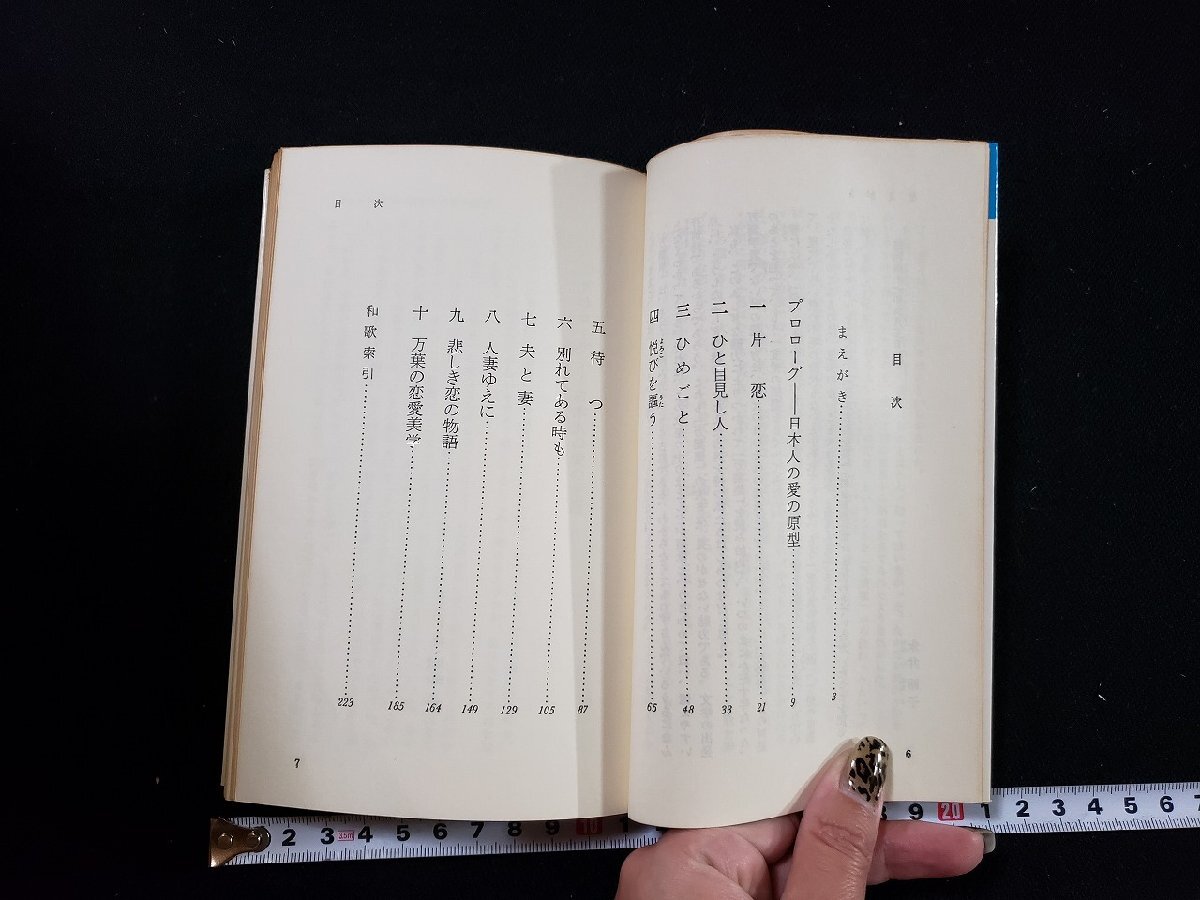 目次
まえがき……3
プロローグ――日本人の愛の原型……9
一 片恋……21
二 ひと目見し人……33
三 ひめごと……48
四 悦びを謳う……65
6
目次
五 待つ……87
六 別れてある時も……105
七 夫と妻……129
八 人妻ゆえに……149
九 悲しき恋の物語……164
十 万葉の恋愛美学……185
和歌索引……223
7
2 3 3.5m 4 5 6 7 8 9 10 1
8 9 20 1 2 3 4 5 6 7